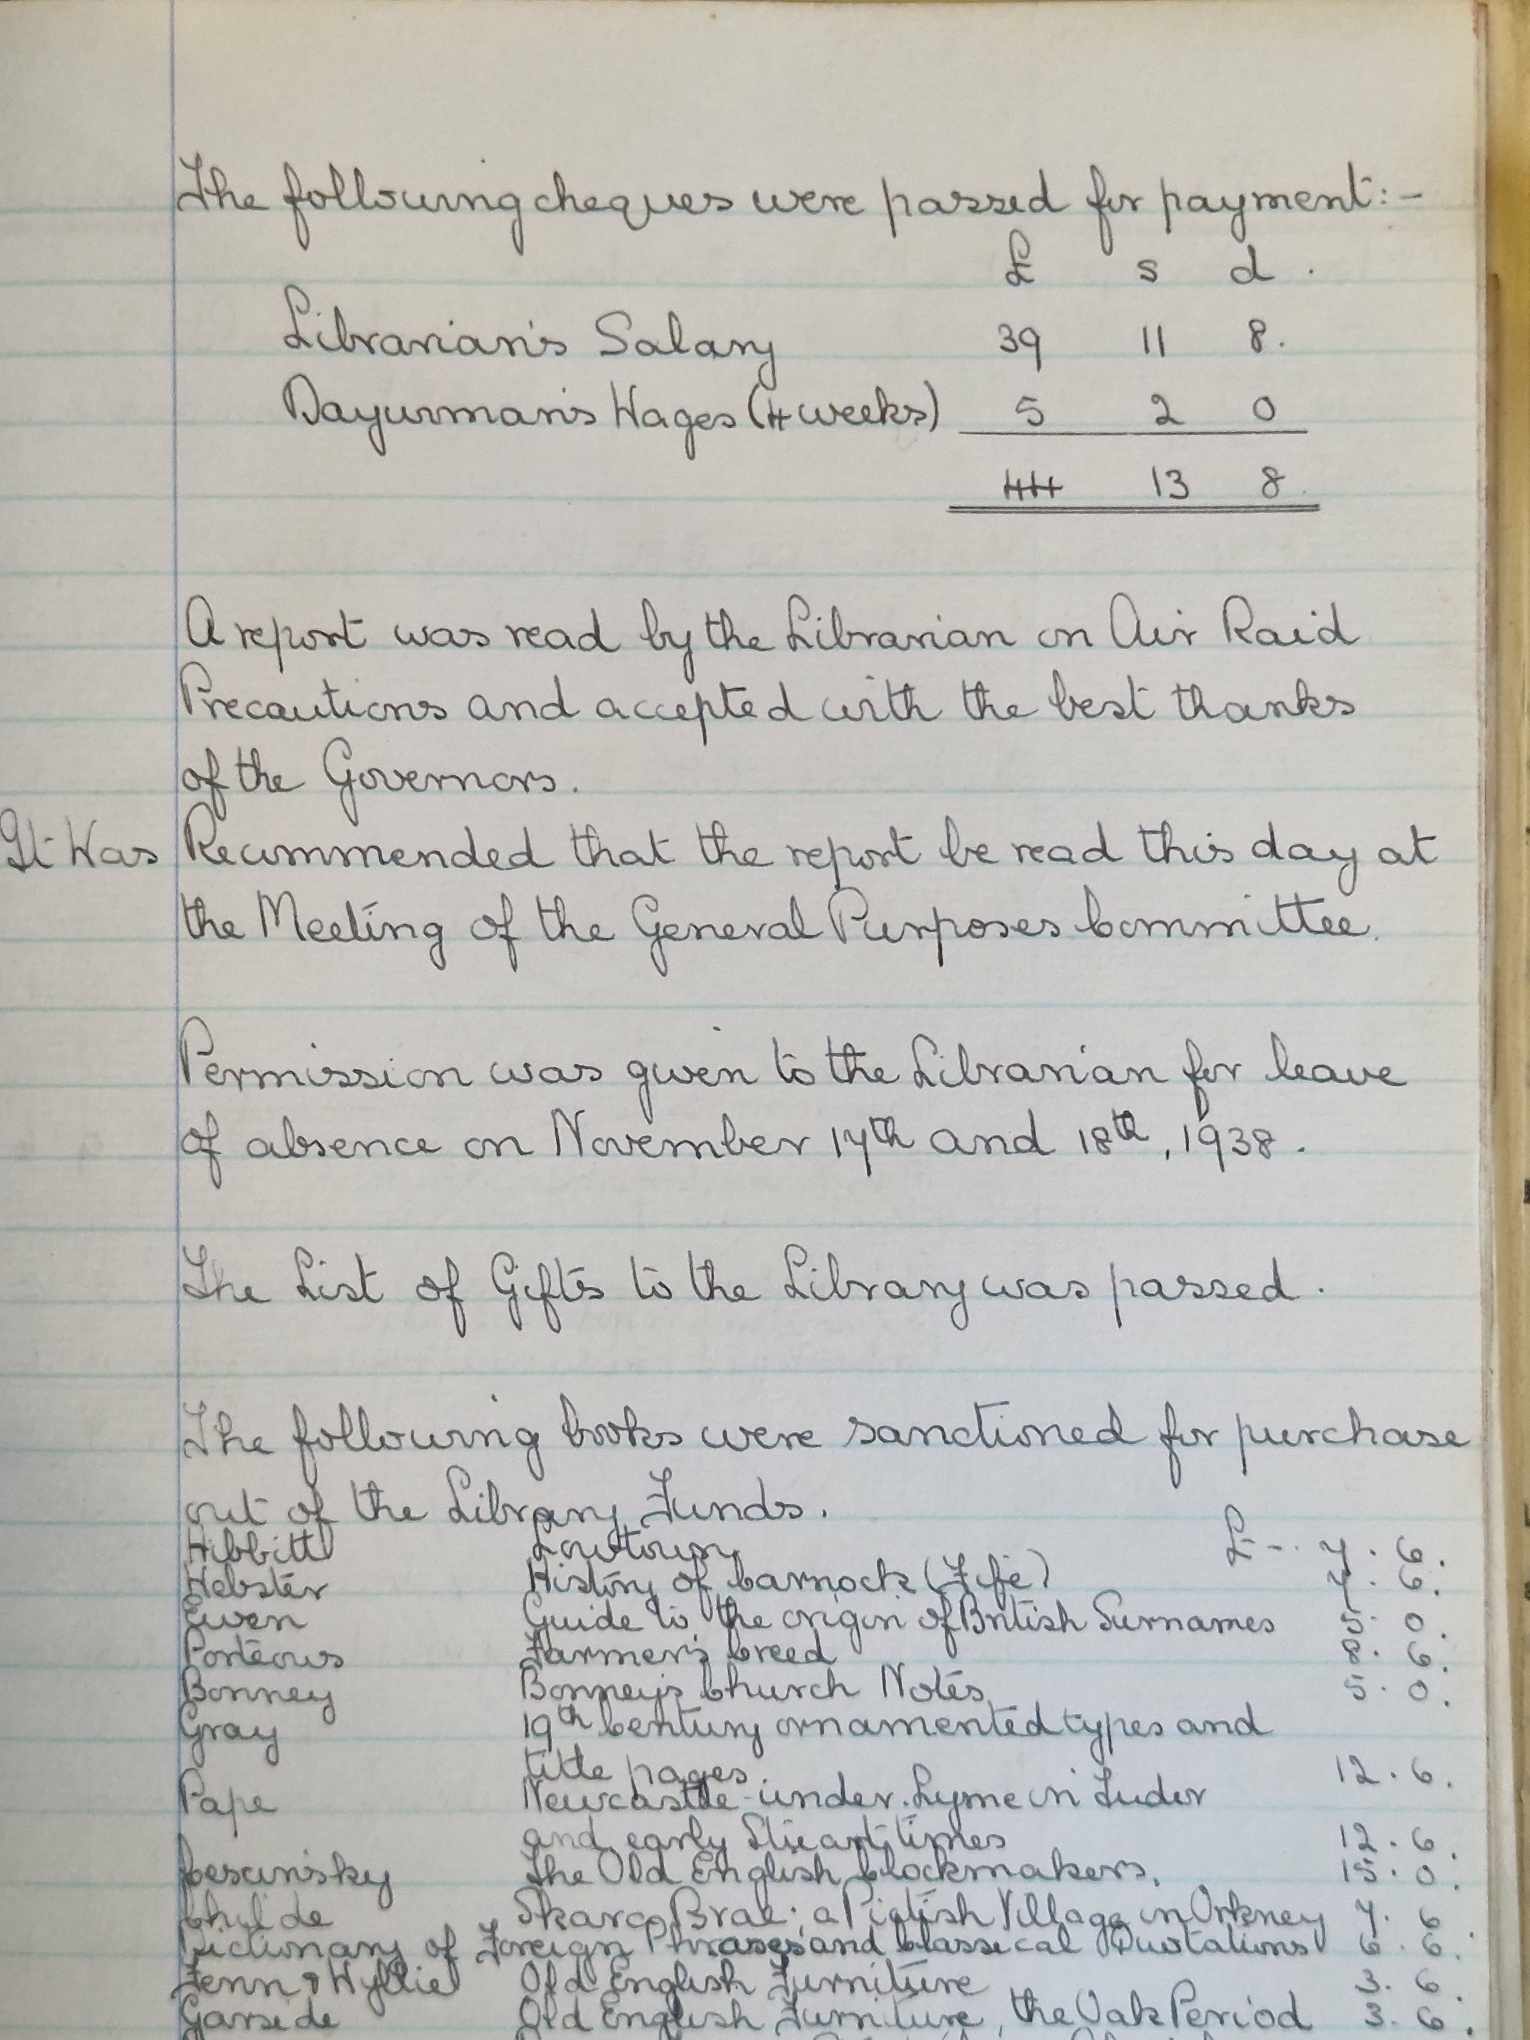 The following cheques were passed for payment:-
£ s d.
Librarian's Salary 39 11 8.
Dayman's Wages (4 weeks) 5 2 0
44 13 8.
A report was read by the Librarian on Air Raid
Precautions and accepted with the best thanks
of the Governors.
It Was Recommended that the report be read this day at
the Meeting of the General Purposes Committee.
Permission was given to the Librarian for leave
of absence on November 17th and 18th, 1938.
The List of Gifts to the Library was passed.
The following books were sanctioned for purchase
out of the Library Funds.
Hibbitt Lowtown £ - . 7 . 6.
Webster History of Carnock (Fife) 7 . 6.
Ewen Guide to the origin of British Surnames 5 . 0.
Porteous Farmer's Creed 8 . 6.
Bonney Bonney's Church Notes 5 . 0.
Gray 19th Century ornamented types and
title pages. 12 . 6.
Pape Newcastle-under-Lyme in Tudor
and early Stuart times 12 . 6.
Cescinsky The Old English Clockmakers. 15 . 0.
Childe Skara Brae; a Pictish Village in Orkney 7 . 6
Dictionary of Foreign Phrases and Classical Quotations 6 . 6.
Fenn & Wyllie Old English Furniture 3 . 6.
Garside Old English Furniture, the Oak Period 3 . 6.